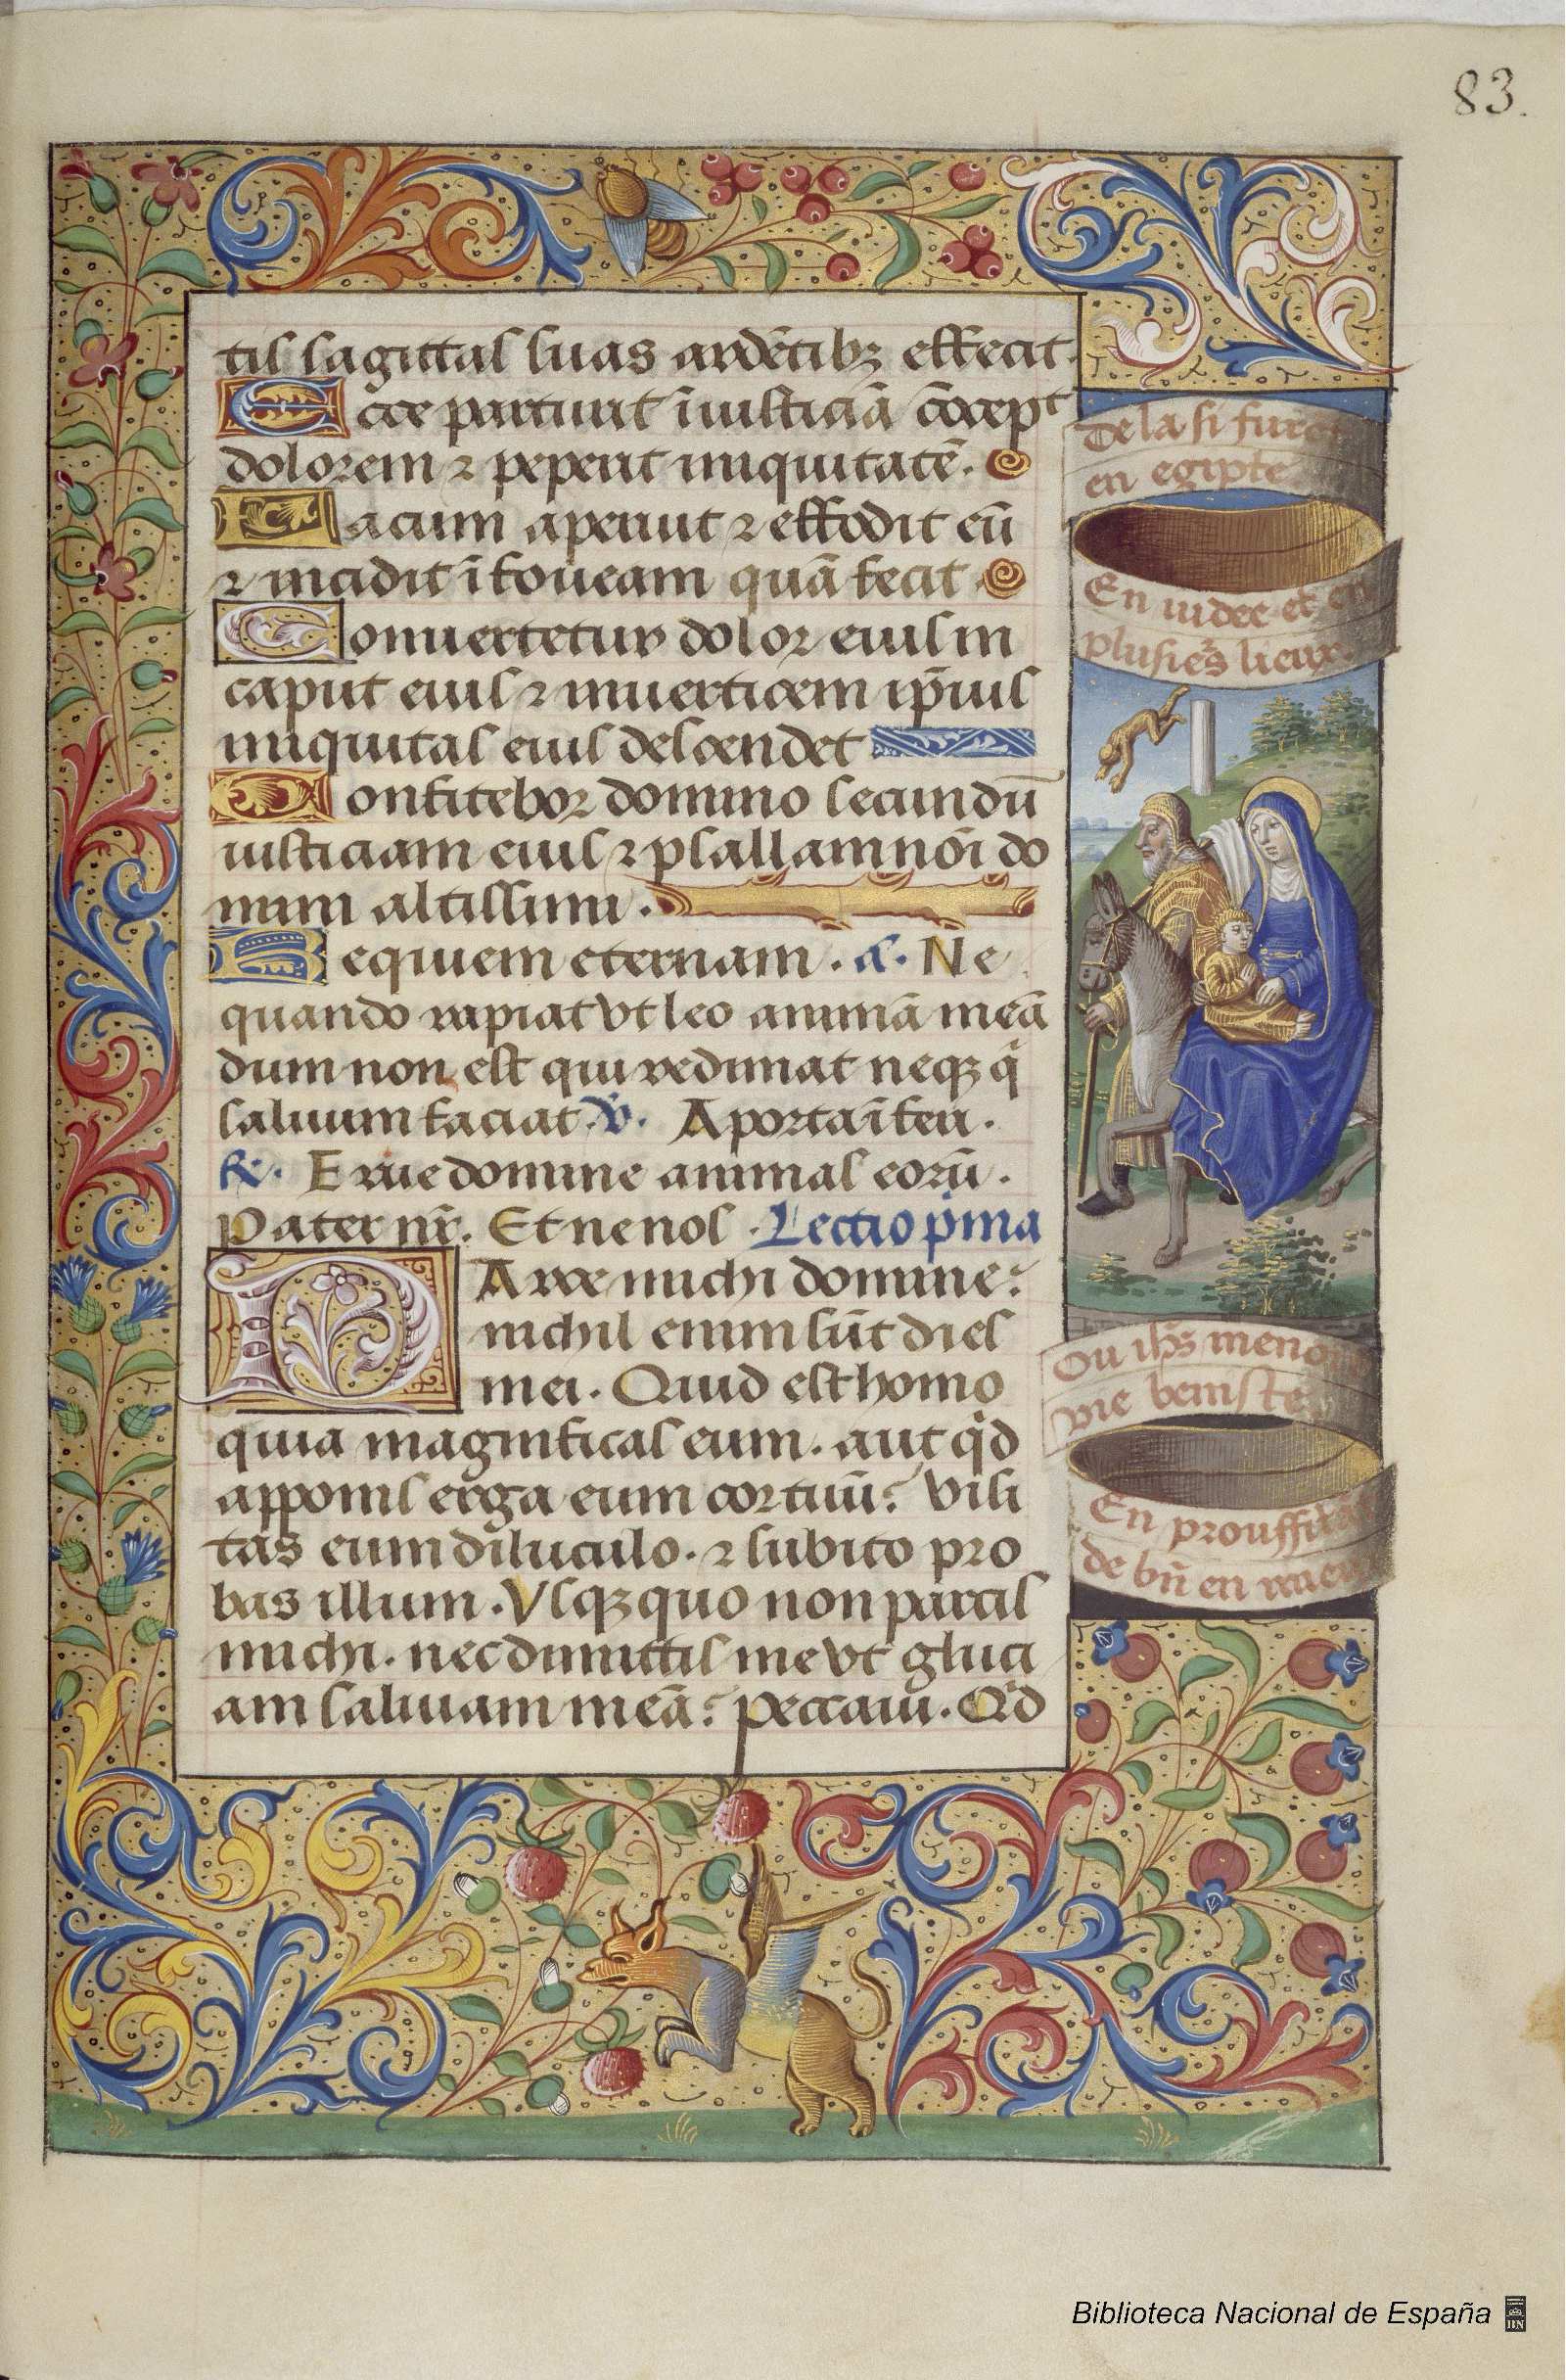 83.
tis sagittas suas ardētibꝫ effecit.
Ecce parturit īiusticiā cōcepᵗ
dolorem ⁊ peperit iniquitatē.
Lacum aperuit ⁊ effodit eū
⁊ incidit ī foueam quā fecit
Conuertetur dolor eius in
caput eius ⁊ inuerticem ip̄ius
iniquitas eius descendet
Confitebor domino secundū
iusticiam eius ⁊ psallam nōi do
mini altissimi.
Requiem eternam. a. Ne
quando rapiat vt leo animā meā
dum non est qui redimat neqꝫ qⁱ
saluum faciat. v̄. A porta īferi.
R̄. Erue domine animas eorū.
Pater nr̄. Et ne nos. Lectio pⁱma
PArce michi domine:
nichil enim sūt dies
mei. Quid est homo
quia magnificas eum. aut qⁱd
apponis erga eum cor tuū: visi
tas eum diluculo. ⁊ subito pro
bas illum. Vsqꝫ quo non parcis
michi. nec dimittis me vt gluci
am saliuam meā: peccaui. Qⁱd
De la si furēt
en egipte
En iudee et en
plusieᵣs lieux.
Ou ih̄s menoit
vie
En prouffitāt
de bn̄ en
Biblioteca Nacional de España